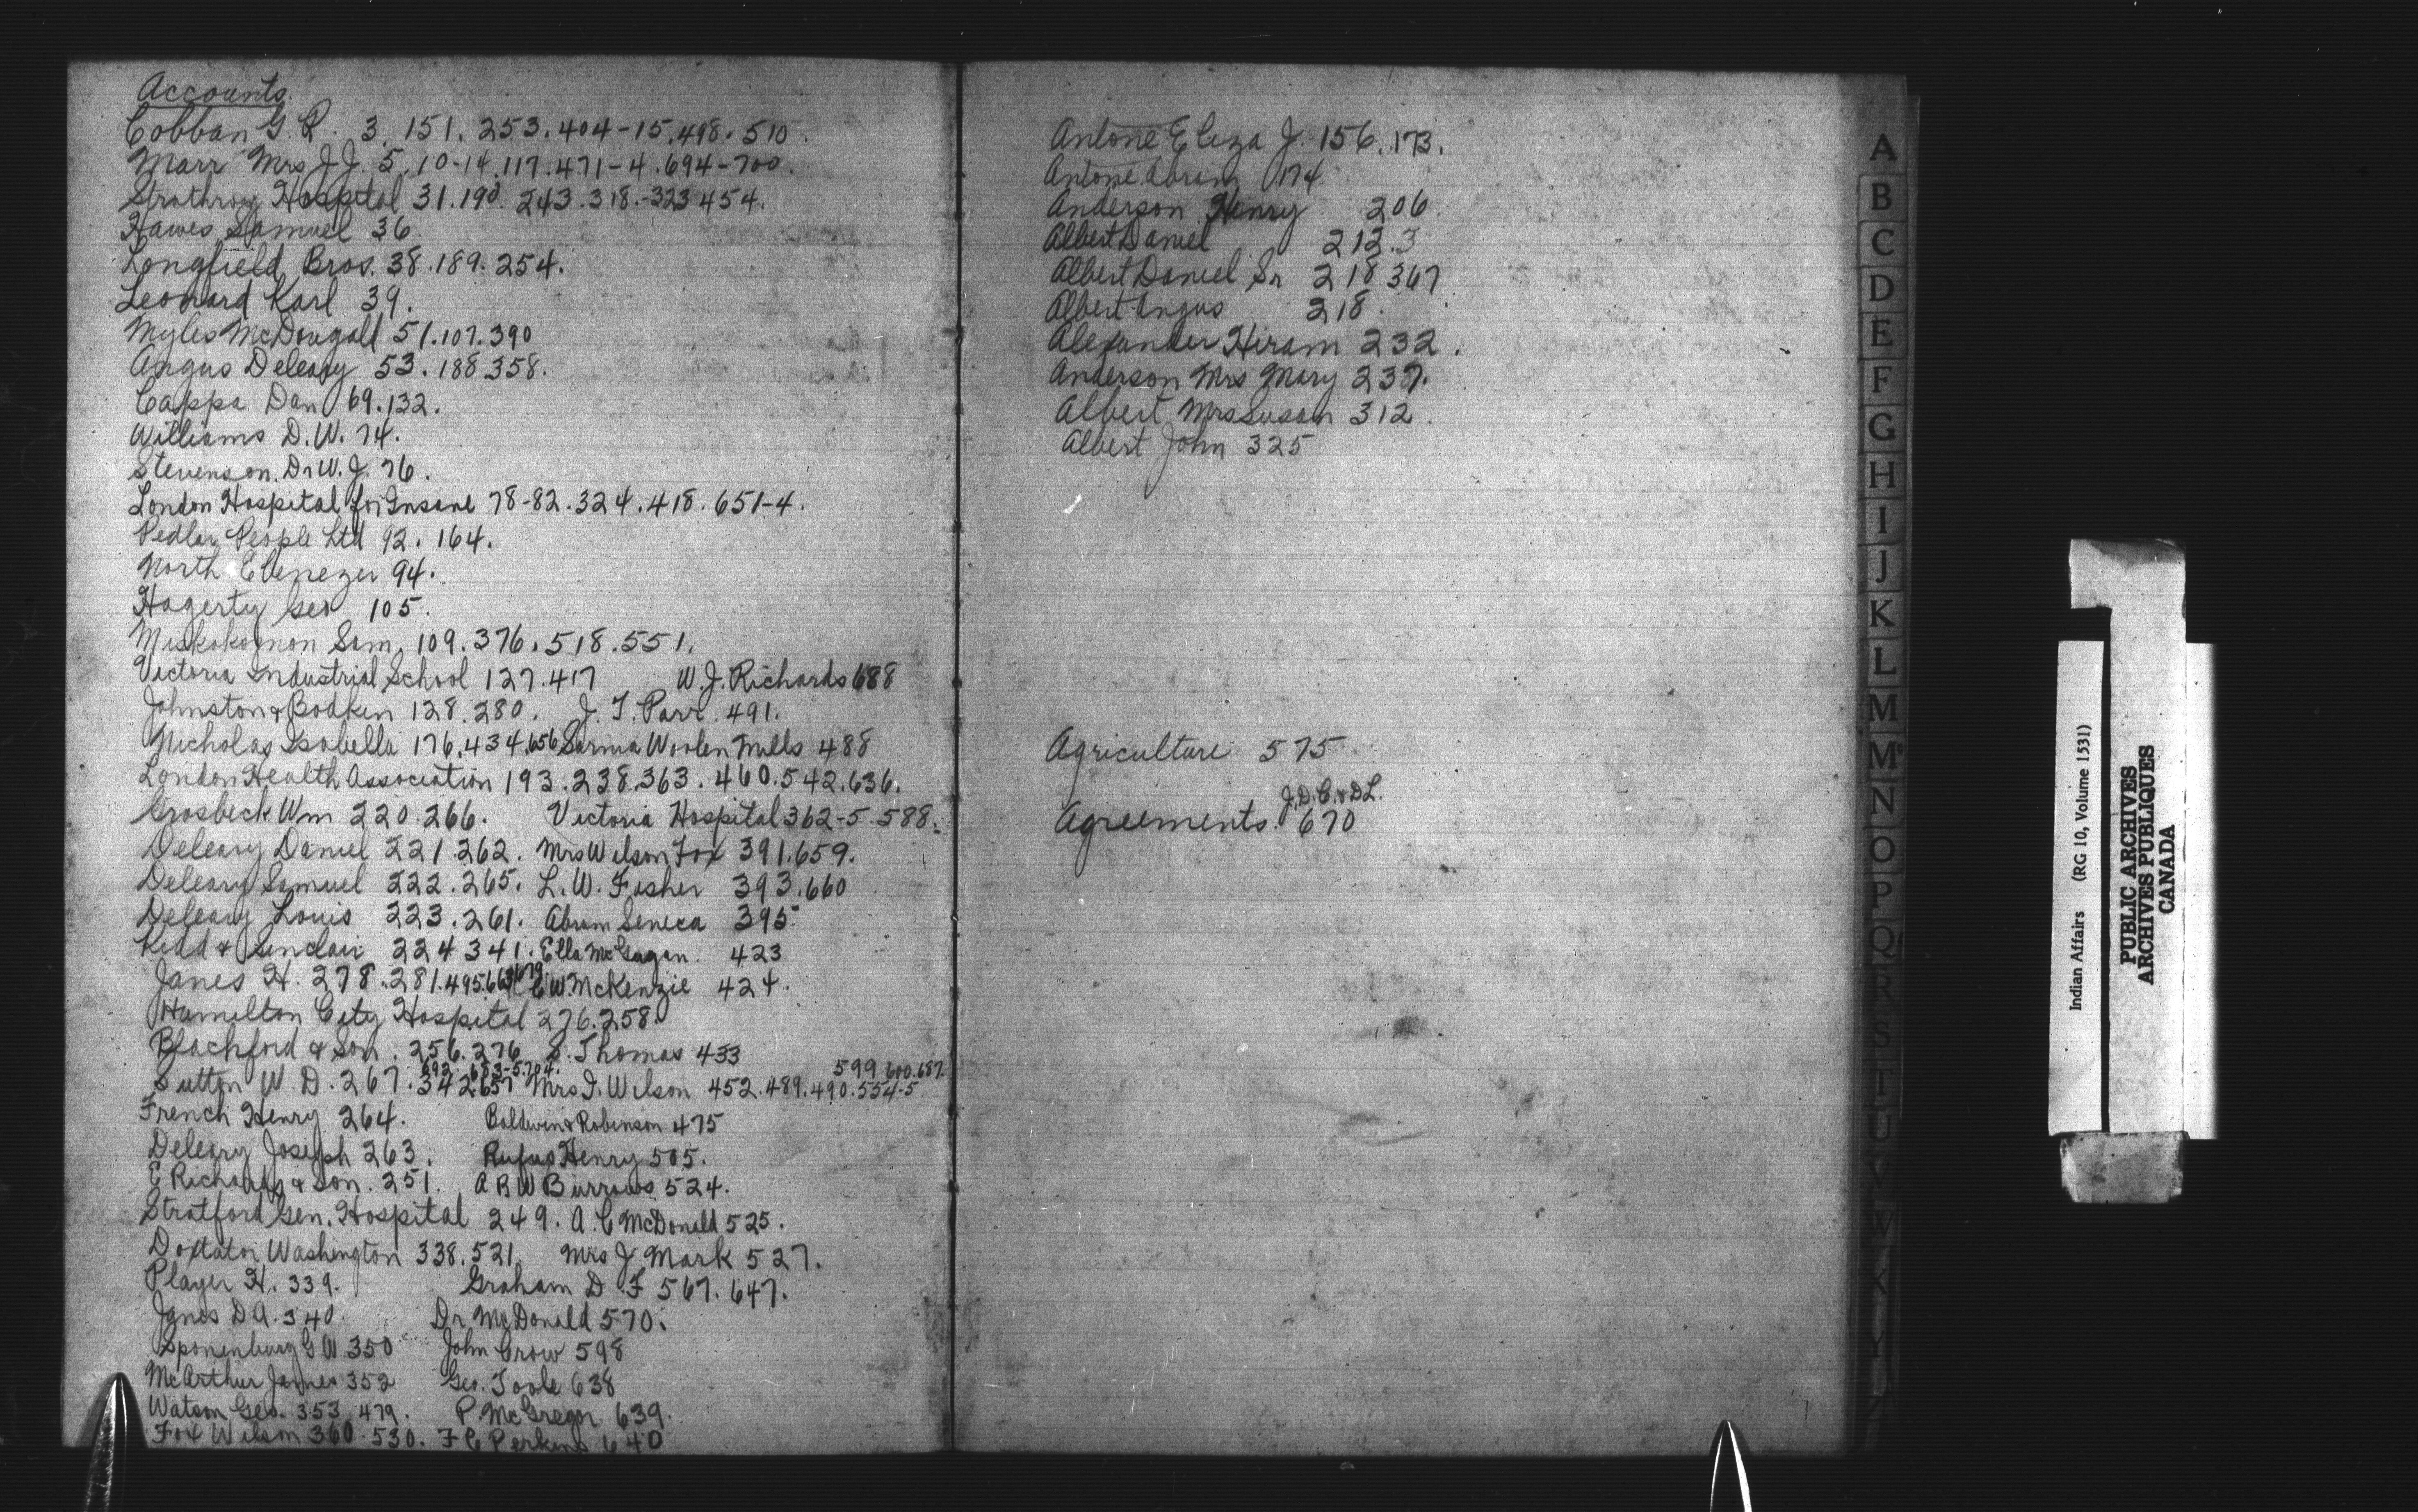 Accounts.
Cobban G. R. 3. 151. 253. 404-15. 498. 510.
Marr Mrs J J. 5. 10-14. 117. 471-4. 694-700.
Strathroy Hospital 31. 190. 243. 318.-323 454.
Hawes Samuel 36.
Longfield Bros. 38. 189. 254.
Leonard Karl 39.
Myles McDougall 51. 107. 390
Angus Deleary 53. 188 358.
Cappa Dan 69. 132.
Williams D. W. 74.
Stevenson. Dr W. J. 76.
London Hospital for Insane 78-82. 324. 418. 651-4.
Pedlar People Ltd 92. 164.
North Ebenezer 94.
Hagerty Geo 105.
Miskokomon Sam. 109. 376. 518. 551.
Victoria Industrial School 127. 417 W. J. Richards 688
Johnston & Bodken 128. 280. J. T. Parr. 491.
Nicholas Isabella 176. 434. 656 Sarnia Woolen Mills 488
London Health Association 193. 238. 363. 460. 542. 636.
Grosbeck Wm 220. 266. Victoria Hospital 362-5. 588.
Deleary Daniel 221. 262. Mrs Wilson Fox 391. 659.
Deleary Samuel 222. 265. L. W. Fisher 393. 660
Deleary Louis 223. 261. Abram Seneca 395
Kidd & Sinclair 224 341. Ella McGugan. 423
Janes H. 278. 281. 495. C W. McKenzie 424.
Hamilton City Hospital 276. 258.
Blachford & Son. 256. 276 S. Thomas 433
692. 653-5. 704. 599 600. 687.
Sutton W. D. 267. 342. 657 Mrs I. Wilson 452. 489. 490. 554-5
French Henry 264. Baldwin & Robinson 475
Deleary Joseph 263. Rufus Henry 505.
E Richards & Son. 251. A R W Burrows 524.
Stratford Gen. Hospital 249. A. C McDonald 525.
Doxtator Washington 338. 521. Mrs J Mark 527.
Player H. 339. Graham D F 567. 647.
Janes D A. 340. Dr. McDonald 570.
Sponenburg G W 350 John Crow 598
McArthur James 352 Geo. Toole 638
Watson Geo. 353 479. P. McGregor 639.
Fox Wilson 360. 530. F C Perkins 640
Antone Eliza J. 156. 173.
Antone Abram 174
Anderson Henry 206.
Albert Daniel 212. 3
Albert Daniel Sr 218 367
Albert Angus 218.
Alexander Hiram 232.
Anderson Mrs Mary 237.
Albert Mrs Susan 312.
Albert John 325
Agriculture 575
J. D. C. & D L.
Agreements. 670
A
B
C
D
E
F
G
H
I
J
K
L
M
Mc
N
O
P
Q
R
S
T
U
V
W
X
Y
Z
Indian Affairs (RG 10, Volume 1531)
PUBLIC ARCHIVES
ARCHIVES PUBLIQUES
CANADA